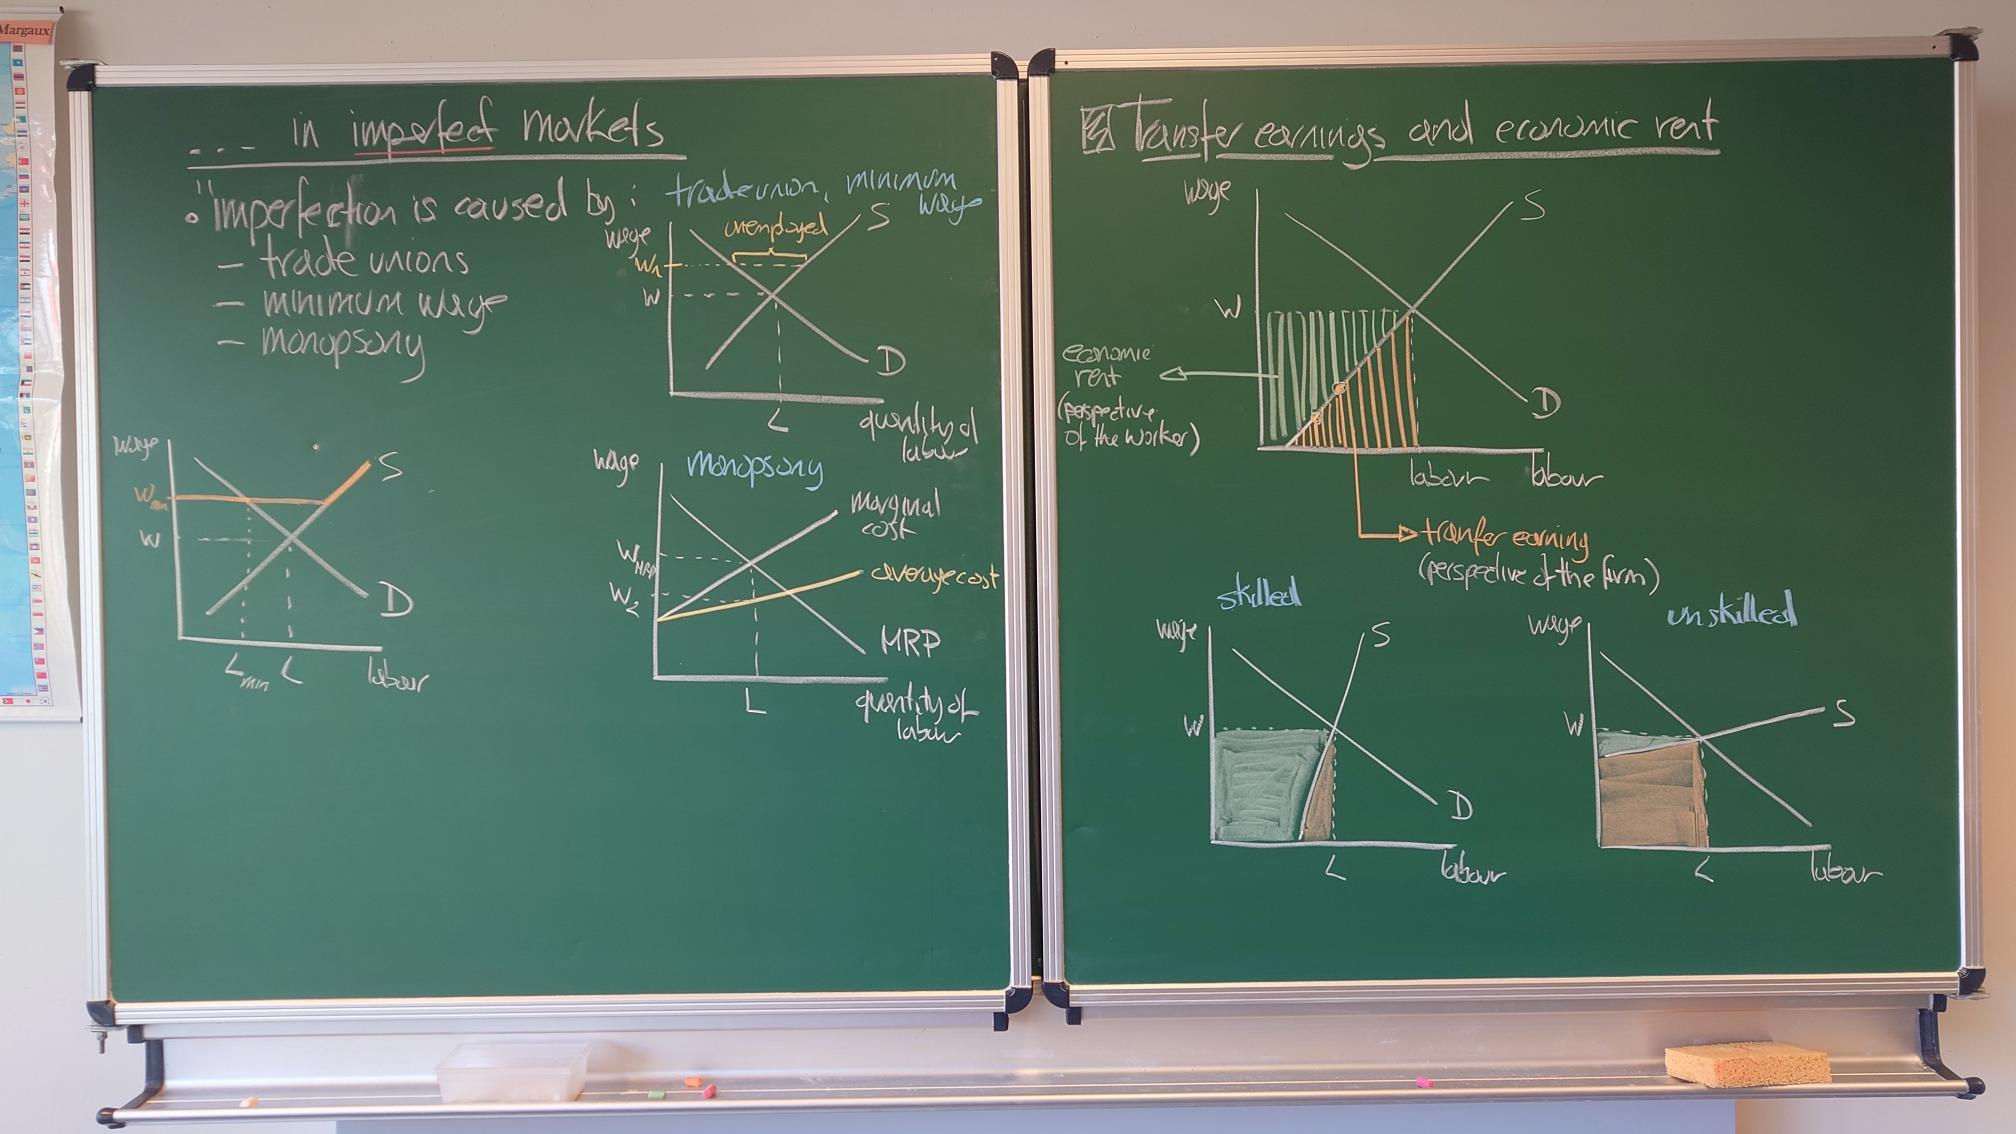 Margaux
... in imperfect markets
• "Imperfection is caused by:
– trade unions
– minimum wage
– monopsony
trade union, minimum
wage
wage
unemployed
S
W1
W
D
L
quantity of
labour
wage
S
Wmin
W
D
Lmin L
labour
wage
monopsony
marginal
cost
WMRP
average cost
W2
MRP
L
quantity of
labour
Transfer earnings and economic rent
wage
S
W
economic
rent
(perspective
of the worker)
D
labour labour
tranfer earning
(perspective of the firm)
skilled
wage
S
W
D
L
labour
unskilled
wage
W
S
L
labour